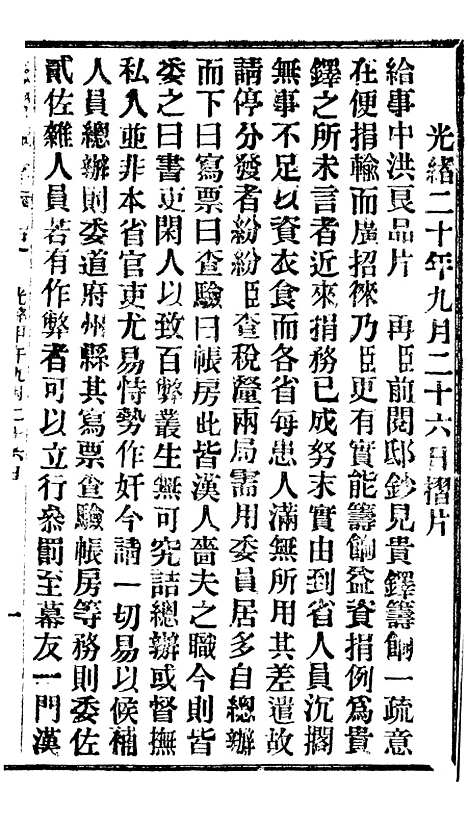 光緒二十年九月二十六日摺片
給事中洪良品片　再臣前閱邸鈔見貴鐸籌餉一疏意
在便捐輸而廣招徠乃臣更有實能籌餉益資捐例爲貴
鐸之所未言者近來捐務已成努末實由到省人員沉擱
無事不足以資衣食而各省每患人滿無所用其差遣故
請停分發者紛紛臣查稅釐兩局需用委員居多自總辦
而下曰寫票曰查驗曰帳房此皆漢人嗇夫之職今則皆
委之曰書吏閑人以致百弊叢生無可究詰總辦或督撫
私人並非本省官吏尤易恃勢作奸今請一切易以候補
人員總辦則委道府州縣其寫票查驗帳房等務則委佐
貳佐雜人員若有作弊者可以立行叅罰至幕友一門漢
光緒甲午九月二十六日
一